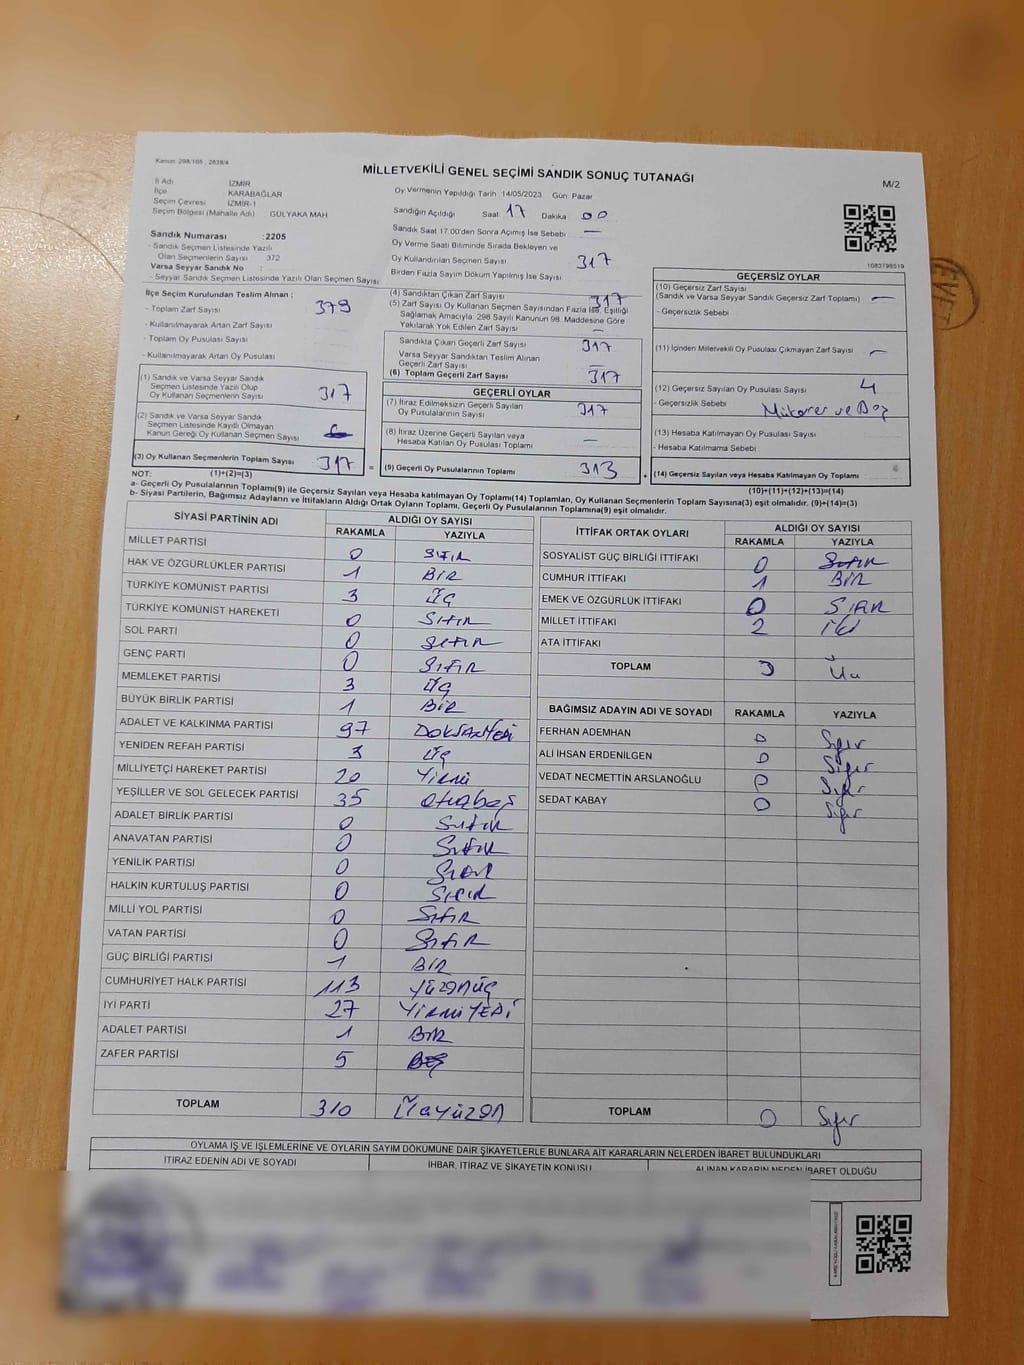 Kanun: 298/105 , 2839/4
MİLLETVEKİLİ GENEL SEÇİMİ SANDIK SONUÇ TUTANAĞI
M/2
İl Adı İZMİR
İlçe KARABAĞLAR
Seçim Çevresi İZMİR-1
Seçim Bölgesi (Mahalle Adı) GÜLYAKA MAH
Sandık Numarası :2205
- Sandık Seçmen Listesinde Yazılı
Olan Seçmenlerin Sayısı 372
Varsa Seyyar Sandık No :
- Seyyar Sandık Seçmen Listesinde Yazılı Olan Seçmen Sayısı
Oy Vermenin Yapıldığı Tarih :14/05/2023 Gün: Pazar
Sandığın Açıldığı Saat: 17 Dakika: 00
Sandık Saat 17.00'den Sonra Açımış İse Sebebi: —
Oy Verme Saati Bitiminde Sırada Bekleyen ve
Oy Kullandırılan Seçmen Sayısı 317
Birden Fazla Sayım Döküm Yapılmış İse Sayısı
1083799519
İlçe Seçim Kurulundan Teslim Alınan :
- Toplam Zarf Sayısı 379
- Kullanılmayarak Artan Zarf Sayısı
- Toplam Oy Pusulası Sayısı
- Kullanılmayarak Artan Oy Pusulası
(1) Sandık ve Varsa Seyyar Sandık
Seçmen Listesinde Yazılı Olup
Oy Kullanan Seçmenlerin Sayısı 317
(2) Sandık ve Varsa Seyyar Sandık
Seçmen Listesinde Kayıtlı Olmayan
Kanun Gereği Oy Kullanan Seçmen Sayısı
(3) Oy Kullanan Seçmenlerin Toplam Sayısı 317
(1)+(2)=(3)
(4) Sandıktan Çıkan Zarf Sayısı 317
(5) Zarf Sayısı Oy Kullanan Seçmen Sayısından Fazla İse, Eşitliği
Sağlamak Amacıyla: 298 Sayılı Kanunun 98. Maddesine Göre
Yakılarak Yok Edilen Zarf Sayısı —
Sandıkta Çıkan Geçerli Zarf Sayısı 317
Varsa Seyyar Sandıktan Teslim Alınan
Geçerli Zarf Sayısı —
(6) Toplam Geçerli Zarf Sayısı 317
GEÇERLİ OYLAR
(7) İtiraz Edilmeksizin Geçerli Sayılan
Oy Pusulalarının Sayısı 317
(8) İtiraz Üzerine Geçerli Sayılan veya
Hesaba Katılan Oy Pusulası Toplamı —
= (9) Geçerli Oy Pusulalarının Toplamı 313
GEÇERSİZ OYLAR
(10) Geçersiz Zarf Sayısı
(Sandık ve Varsa Seyyar Sandık Geçersiz Zarf Toplamı) —
- Geçersizlik Sebebi
(11) İçinden Milletvekili Oy Pusulası Çıkmayan Zarf Sayısı —
(12) Geçersiz Sayılan Oy Pusulası Sayısı 4
- Geçersizlik Sebebi
(13) Hesaba Katılmayan Oy Pusulası Sayısı
- Hesaba Katılmama Sebebi
+ (14) Geçersiz Sayılan veya Hesaba Katılmayan Oy Toplamı
(10)+(11)+(12)+(13)=(14)
NOT:
a- Geçerli Oy Pusulalarının Toplamı(9) ile Geçersiz Sayılan veya Hesaba katılmayan Oy Toplamı(14) Toplamları, Oy Kullanan Seçmenlerin Toplam Sayısına(3) eşit olmalıdır. (9)+(14)=(3)
b- Siyasi Partilerin, Bağımsız Adayların ve İttifakların Aldığı Ortak Oyların Toplamı, Geçerli Oy Pusulalarının Toplamına(9) eşit olmalıdır.
SİYASİ PARTİNİN ADI ALDIĞI OY SAYISI
RAKAMLA YAZIYLA
MİLLET PARTİSİ 0 SIFIR
HAK VE ÖZGÜRLÜKLER PARTİSİ 1 BİR
TÜRKİYE KOMÜNİST PARTİSİ 3 ÜÇ
TÜRKİYE KOMÜNİST HAREKETİ 0 SIFIR
SOL PARTİ 0 SIFIR
GENÇ PARTİ 0 SIFIR
MEMLEKET PARTİSİ 3 ÜÇ
BÜYÜK BİRLİK PARTİSİ 1 BİR
ADALET VE KALKINMA PARTİSİ 97 DOKSANYEDİ
YENİDEN REFAH PARTİSİ 3 ÜÇ
MİLLİYETÇİ HAREKET PARTİSİ 20 YİRMİ
YEŞİLLER VE SOL GELECEK PARTİSİ 35 otuzbeş
ADALET BİRLİK PARTİSİ 0 SIFIR
ANAVATAN PARTİSİ 0 SIFIR
YENİLİK PARTİSİ 0 SIFIR
HALKIN KURTULUŞ PARTİSİ 0 SIFIR
MİLLİ YOL PARTİSİ 0 SIFIR
VATAN PARTİSİ 0 SIFIR
GÜÇ BİRLİĞİ PARTİSİ 1 BİR
CUMHURİYET HALK PARTİSİ 113 YÜZONÜÇ
İYİ PARTİ 27 YİRMİYEDİ
ADALET PARTİSİ 1 BİR
ZAFER PARTİSİ 5 BEŞ
TOPLAM 310 ÜÇYÜZON
İTTİFAK ORTAK OYLARI ALDIĞI OY SAYISI
RAKAMLA YAZIYLA
SOSYALİST GÜÇ BİRLİĞİ İTTİFAKI 0 SIFIR
CUMHUR İTTİFAKI 1 BİR
EMEK VE ÖZGÜRLÜK İTTİFAKI 0 SIFIR
MİLLET İTTİFAKI 2 İKİ
ATA İTTİFAKI
TOPLAM 3 Üç
BAĞIMSIZ ADAYIN ADI VE SOYADI RAKAMLA YAZIYLA
FERHAN ADEMHAN 0 Sıfır
ALİ İHSAN ERDENİLGEN 0 Sıfır
VEDAT NECMETTİN ARSLANOĞLU 0 Sıfır
SEDAT KABAY 0 Sıfır
TOPLAM 0 Sıfır
OYLAMA İŞ VE İŞLEMLERİNE VE OYLARIN SAYIM DÖKÜMÜNE DAİR ŞİKAYETLERLE BUNLARA AİT KARARLARIN NELERDEN İBARET BULUNDUKLARI
İTİRAZ EDENİN ADI VE SOYADI İHBAR, İTİRAZ VE ŞİKAYETİN KONUSU ALINAN KARARIN NEDEN İBARET OLDUĞU
EVET